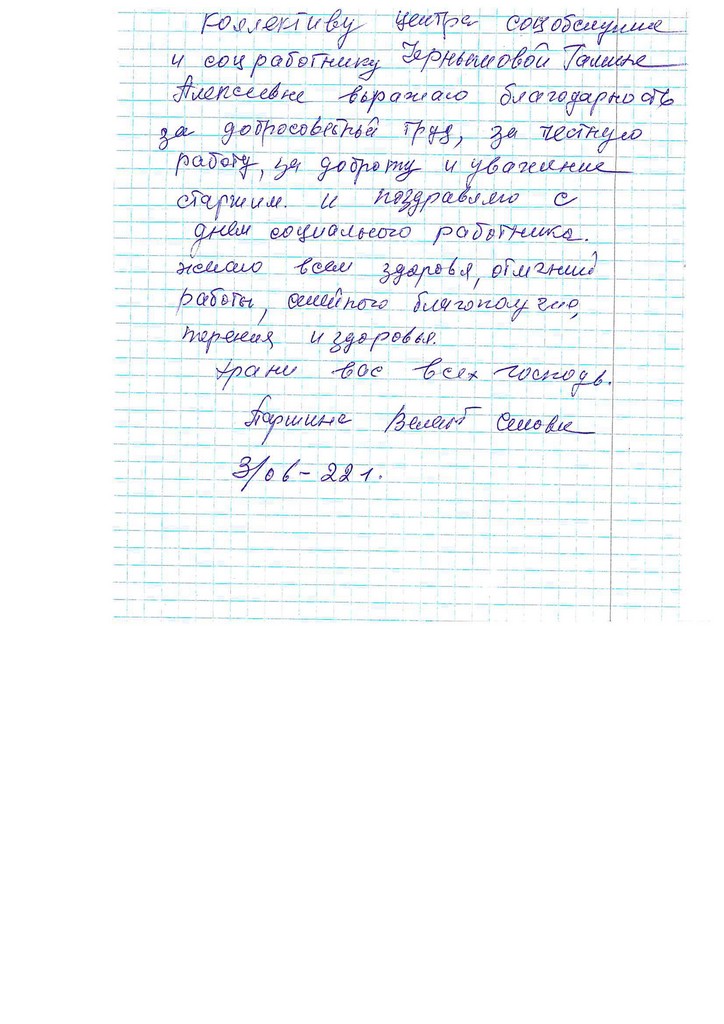 Коллективу центра соцобслужив
и соцработнику Чернышовой Галине
Алексеевне выражаю благодарность
за добросовестный труд, за честную
работу, за доброту и уважение
старшим. и поздравляю с
днем социального работника.
желаю всем здоровья, отличной
работы, семейного благополучию,
терения и здоровья.
Храни вас всех господь.
Паршина Валент Семовн
3/06-22 г.